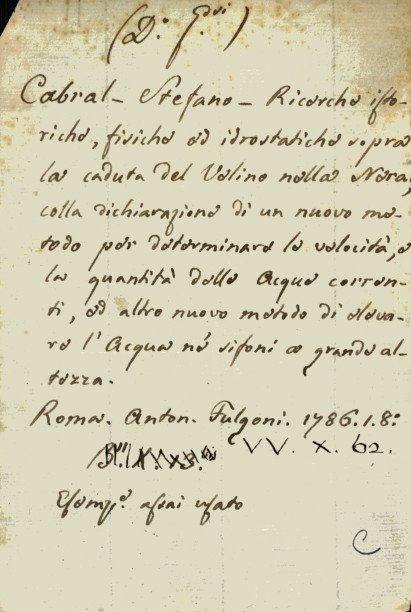 (D.º G.svi)
Cabral - Stefano - Ricerche isto-
riche, fisiche ed idrostatiche sopra
la caduta del Velino nella Nera,
colla dichiarazione di un nuovo me-
todo per determinare le velocità, e
la quantità delle Acque corren-
ti, ed altro nuovo metodo di eleva-
re l'Acqua né sifoni a grande al-
tezza.
Roma. Anton. Fulgoni. 1786. 1. 8º
VV. X. 62.
Esemp.e assai usato
C